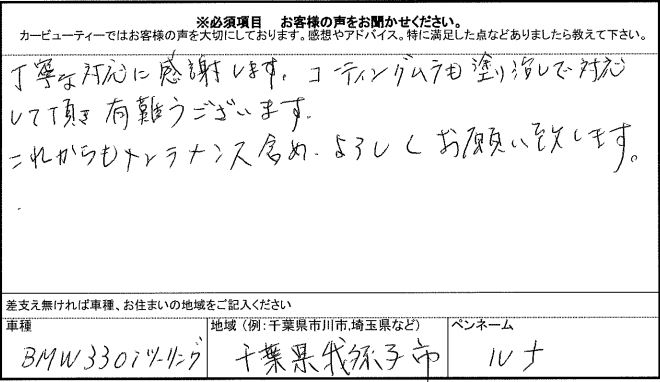 ※必須項目 お客様の声をお聞かせください。
カービューティーではお客様の声を大切にしております。感想やアドバイス。特に満足した点などありましたら教えて下さい。
丁寧な対応に感謝します。コーティングムラも塗り治しで対応
して頂き有難うございます。
これからもメンテナンス含め、よろしくお願い致します。
差支え無ければ車種、お住まいの地域をご記入ください
車種 地域（例：千葉県市川市,埼玉県など） ペンネーム
BMW330iツーリング 千葉県我孫子市 ルナ